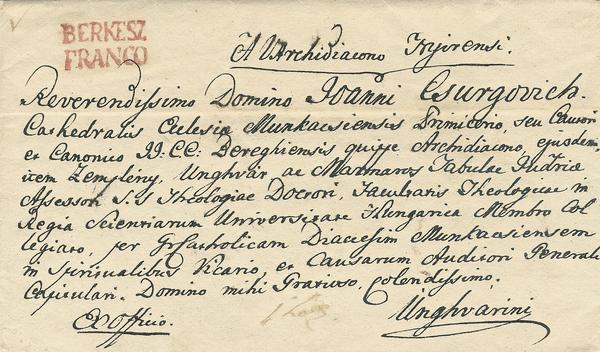 BERKESZ
FRANCO
A VArchidiacono Nyirensi.
Reverendissimo Domino Ioanni Csurgovich.
Cathedralis Eclesiæ Munkacsiensis Primicerio, seu Cantori
et Canonico II: CC: Bereghiensis quippe Archidiacono, ejusdem,
item Zempleny, Unghvar ac Marmaros Tabulae Iudriæ
Assessori S.S Theologiae Doctori, Facultatis Theologicae in
Regia Scientiarum Universitate Hungarica Membro Col
legiato, per GrCatholicam Diæcesim Munkacsiensem
in Spiritualibus Vicario, et Causarum Auditori Generali
Capitulari. Domino mihi Gratioso, colendissimo.
Ex Officio.
Unghvarini